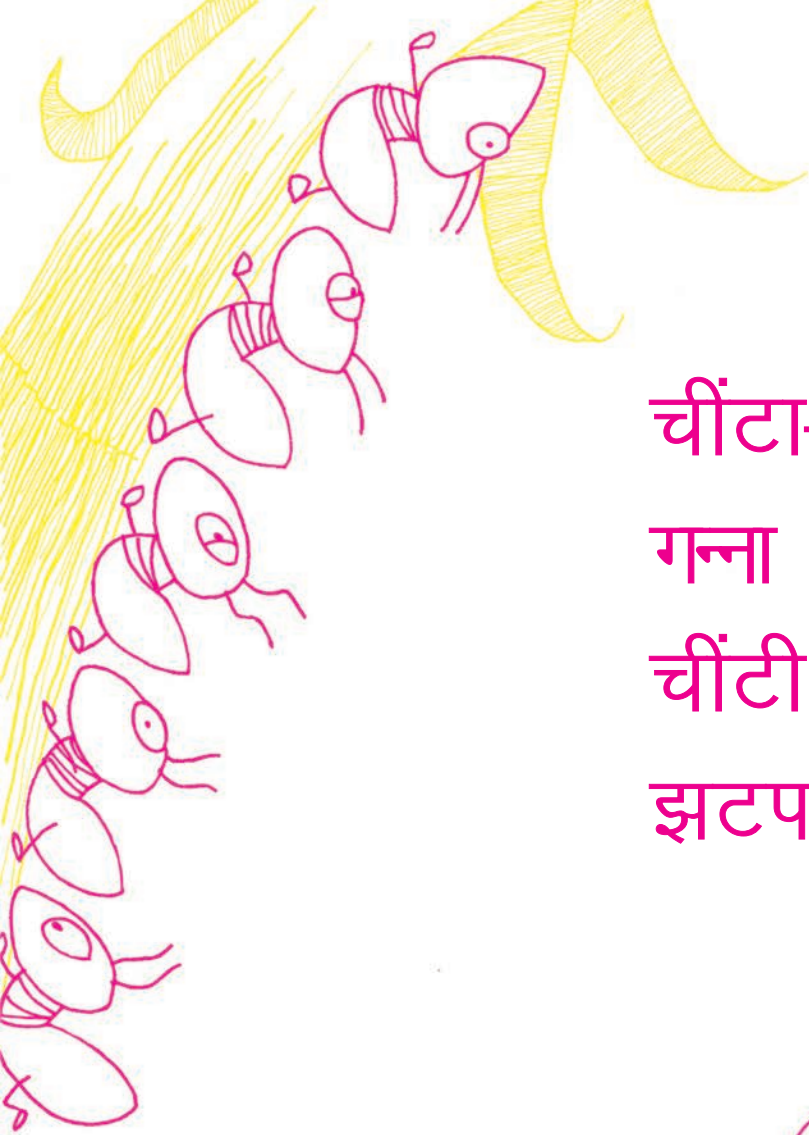 चींटा-
गन्ना
चींटी
झटप